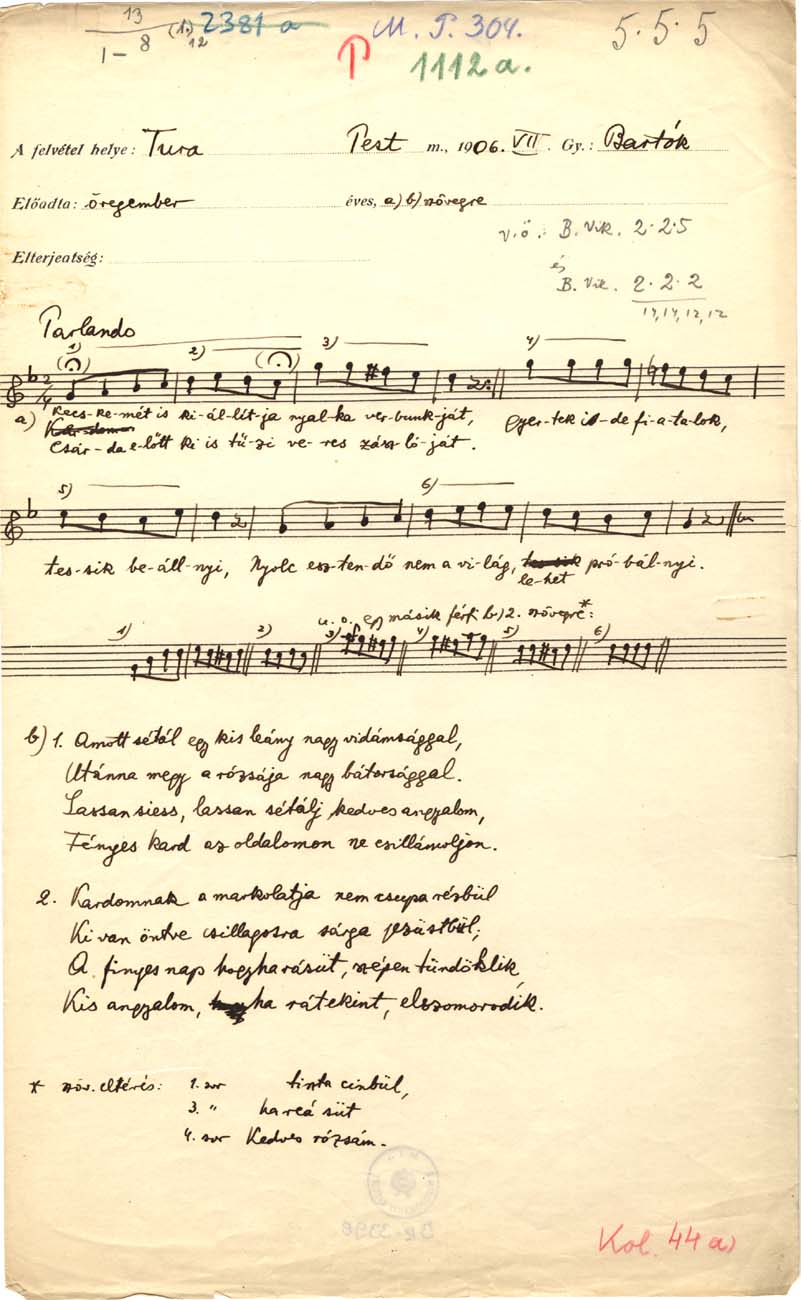 13
1–8 (1.) 12 2381 a M. P. 304. 5. 5. 5
P 1112 a.
A felvétel helye: Tura Pest m., 1906. VII. Gy.: Bartók
Előadta: öregember éves, a) b) szövegre
v.ö. B. Vik. 2. 2. 5
Elterjedtség:
és
B. Vik. 2. 2. 2
14, 14, 12, 12
Parlando
1) 2) 3) 4)
a) Kecs-ke-mét is ki-ál-lít-ja nyal-ka ver-bunk-ját, gyer-tek id-de fi-a-ta-lok,
Csár-da e-lőtt ki is tű-zi ve-res zász-ló-ját.
5) 6)
tes-sik be-áll-nyi, Nyolc esz-ten-dő nem a vi-lág, tes-sik pró-bál-nyi.
le-het
u. o. egy másik férfi b) 2. szövegre*:
1) 2) 3) 4) 5) 6)
b) 1. Amott sétál egy kis leány nagy vidámsággal,
Utánna megy a rózsája nagy bátorsággal.
Lassan siess, lassan sétálj, kedves angyalom,
Fényes kard az oldalomon ne csillámoljon.
2. Kardomnak a markolatja nem csupa rézbül
Ki van öntve csillagosra sárga jezüstbül;
A finyes nap hogyha rásüt, szépen tündöklik,
Kis angyalom, ha rátekint, elszomorodik.
* szöv. eltérés: 1. sor tiszta cinbül,
3. " ha reá süt
4. sor Kedves rózsám.
Kol. 44 a)